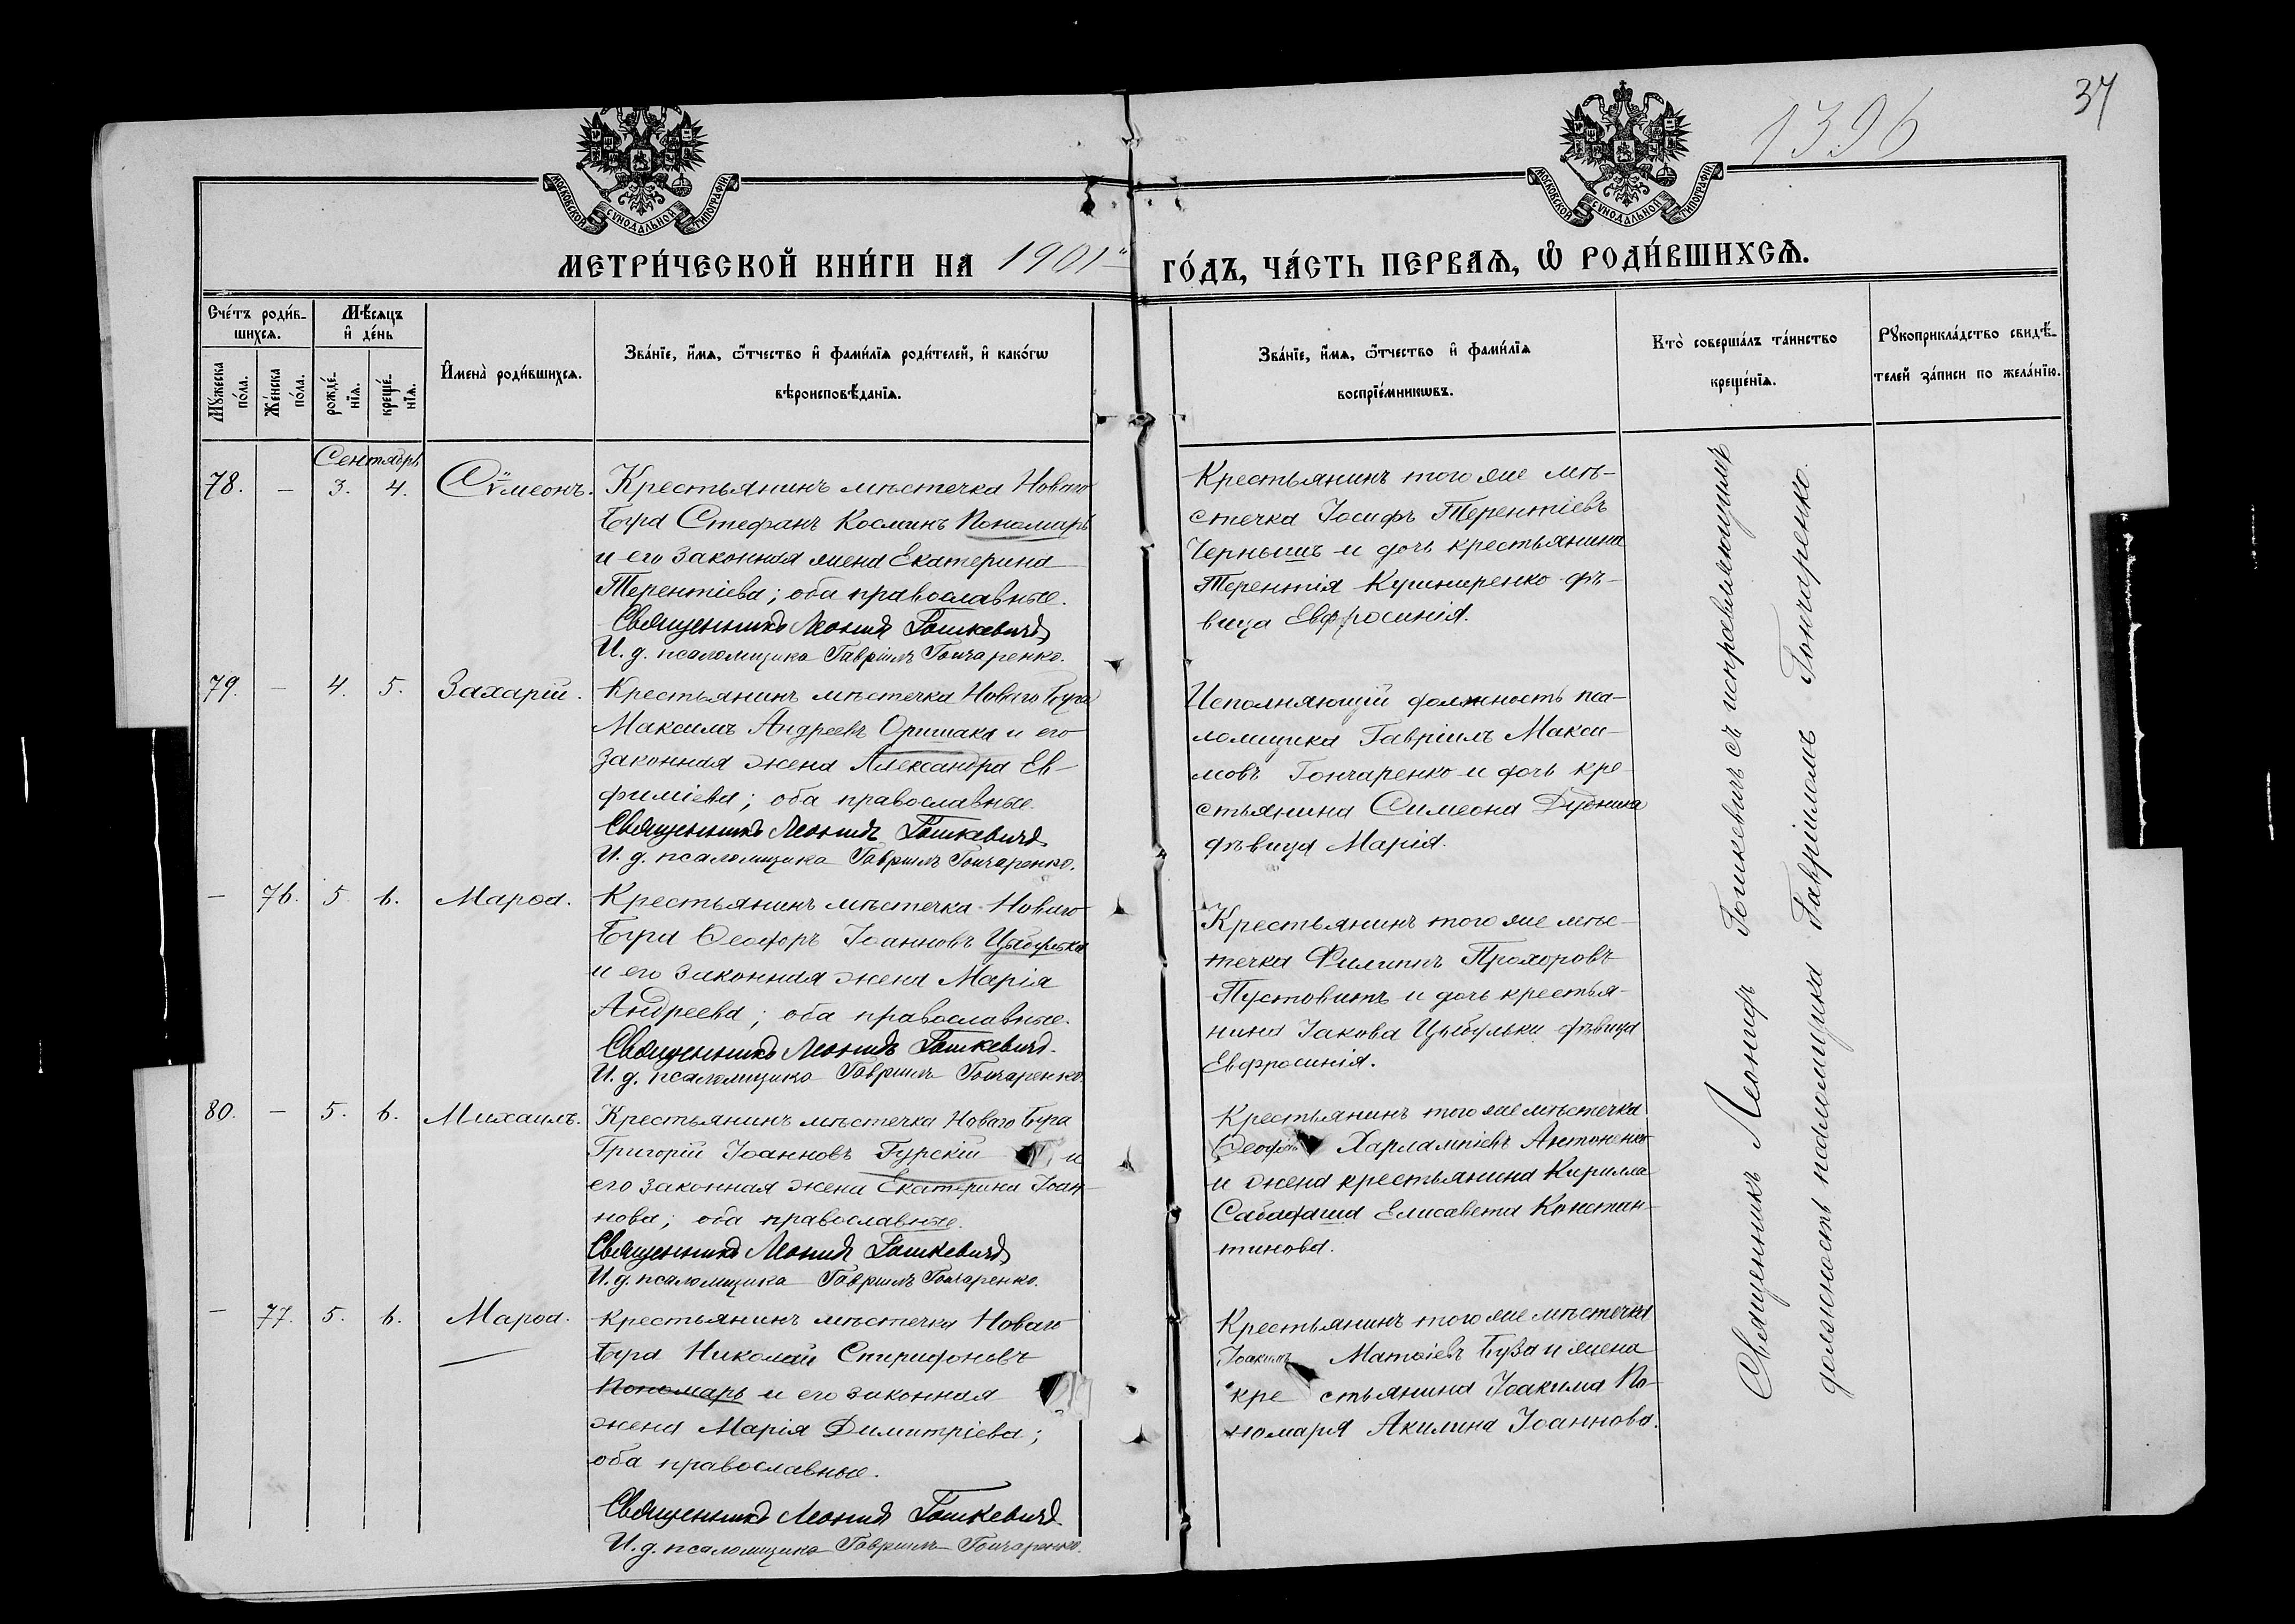 37
1396
МОСКОВСКОЙ СѴНОДАЛЬНОЙ ТИПОГРАФІИ
МОСКОВСКОЙ СѴНОДАЛЬНОЙ ТИПОГРАФІИ
МЕТРИ́ЧЕСКОЙ КНИ́ГИ НА 1901 ГО́ДЪ, ЧА́СТЬ ПЕРВАѦ, Ѡ҆ РОДИ́ВШИХСѦ.
Сче́тъ роди́в-
шихсѧ.
Мꙋжеска
по́ла.
Же́нска
по́ла.
Мѣ́сѧцъ
и҆ де́нь
рожде́-
нїѧ.
креще́-
нїѧ.
И҆мена̀ роди́вшихсѧ.
Зва́нїе, и҆́мѧ, ѻ҆́тчество и҆ фами́лїѧ роди́телей, и҆ како́гѡ
вѣроисповѣ́данїѧ.
Зва́нїе, и҆́мѧ, ѻ҆́тчество и҆ фами́лїѧ
воспрїе́мникѡвъ.
Кто̀ соверша́лъ та́инство
креще́нїѧ.
Рꙋкоприкла́дство свидѣ́-
телей за́писи по жела́нїю.
Сентябрь
78. — 3. 4. Сѵмеонъ.
Крестьянинъ мѣстечка Новаго
Буга Стефанъ Косминъ Пономарь
и его законная жена Екатерина
Терентіева; оба православные.
Священникъ Леонидъ Гошкевичъ
И. д. псаломщика Гавріилъ Гончаренко.
Крестьянинъ того же мѣ-
стечка Іосифъ Терентіевъ
Чернышъ и дочь крестьянина
Терентія Кушниренко дѣ-
вица Евфросинія.
79. — 4. 5. Захарій.
Крестьянинъ мѣстечка Новаго Буга
Максимъ Андреевъ Оришака и его
законная жена Александра Ев-
фиміева; оба православные.
Священникъ Леонидъ Гошкевичъ
И. д. псаломщика Гавріилъ Гончаренко.
Исполняющій должность пса-
ломщика Гавріилъ Макси-
мовъ Гончаренко и дочь кре-
стьянина Симеона Дубника
дѣвица Марія.
— 76. 5. 6. Марѳа.
Крестьянинъ мѣстечка Новаго
Буга Ѳеодоръ Іоанновъ Цыбулька
и его законная жена Марія
Андреева; оба православные.
Священникъ Леонидъ Гошкевичъ.
И. д. псаломщика Гавріилъ Гончаренко.
Крестьянинъ того же мѣс-
течка Филиппъ Прохоровъ
Пустовитъ и дочь крестья-
нина Іакова Цыбульки дѣвица
Евфросинія.
80. — 5. 6. Михаилъ.
Крестьянинъ мѣстечка Новаго Буга
Григорій Іоанновъ Гурскій и
его законная жена Екатерина Іоан-
нова; оба православные.
Священникъ Леонидъ Гошкевичъ
И. д. псаломщика Гавріилъ Гончаренко.
Крестьянинъ того же мѣстечка
Харлампіевъ Антоненко
и жена крестьянина Кирилла
Сабадаша Елисавета Констан-
тинова.
— 77. 5. 6. Марѳа.
Крестьянинъ мѣстечка Новаго
Буга Николай Спиридоновъ
Пономарь и его законная
жена Марія Димитріева;
оба православные.
Священникъ Леонидъ Гошкевичъ.
И. д. псаломщика Гавріилъ Гончаренко.
Крестьянинъ того же мѣстечка
Іоакимъ Матѳіевъ Буза и жена
кре стьянина Іоакима По-
номаря Акилина Іоаннова.
Священникъ Леонидъ Гошкевичъ съ исправляющимъ
должность псаломщика Гавріиломъ Гончаренко.